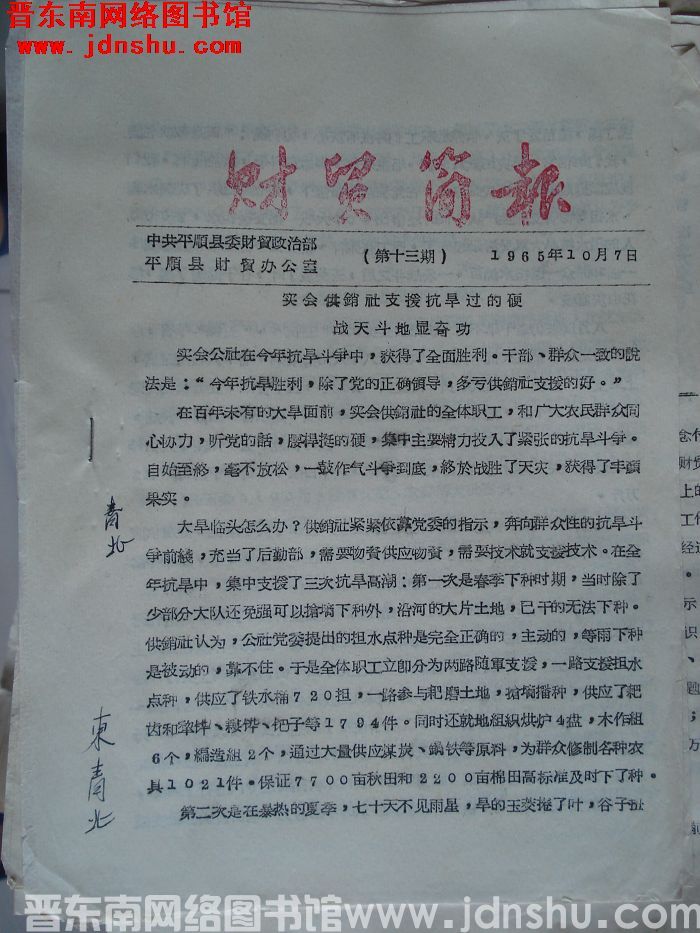 晋东南网络图书馆
www.jdnshu.com
财贸简报
中共平順县委財貿政治部
平順县財貿办公室
(第十三期)
1965年10月7日
实会供銷社支援抗旱过的硬
战天斗地显奋功
实会公社在今年抗旱斗爭中，获得了全面胜利。干部、群众一致的說
法是：“今年抗旱胜利，除了党的正确領导，多亏供銷社支援的好。”
在百年未有的大旱面前，实会供銷社的全体职工，和广大农民群众同
心协力，听党的話，腰桿挺的硬，集中主要精力投入了紧张的抗旱斗爭。
自始至終，毫不放松，一鼓作气斗爭到底，終於战胜了天灾，获得了丰碩
果实。
大旱临头怎么办？供銷社紧紧依靠党委的指示，奔向群众性的抗旱斗
爭前綫，充当了后勤部，需要物資供应物資，需要技术就支援技术。在全
年抗旱中，集中支援了三次抗旱高潮：第一次是春季下种时期，当时除了
少部分大队还免强可以搶墒下种外，沿河的大片土地，已干的无法下种。
供銷社认为，公社党委提出的担水点种是完全正确的，主动的，等雨下种
是被动的，靠不住。于是全体职工立即分为两路随軍支援，一路支援担水
点种，供应了铁水桶720担，一路参与耙磨土地，搶墒播种，供应了耙
齿和犂铧、耧铧、钯子等1794件。同时还就地组织烘炉4盘，木作組
6个，編造組2个，通过大量供应煤炭、鍋铁等原料，为群众修制各种农
具1021件。保证7700亩秋田和2200亩棉田高标准及时下了种。
第二次是在暴热的夏季，七十天不见雨星，旱的玉茭捲了叶，谷子
青北
東青北
晋东南网络图书馆 www.jdnshu.com